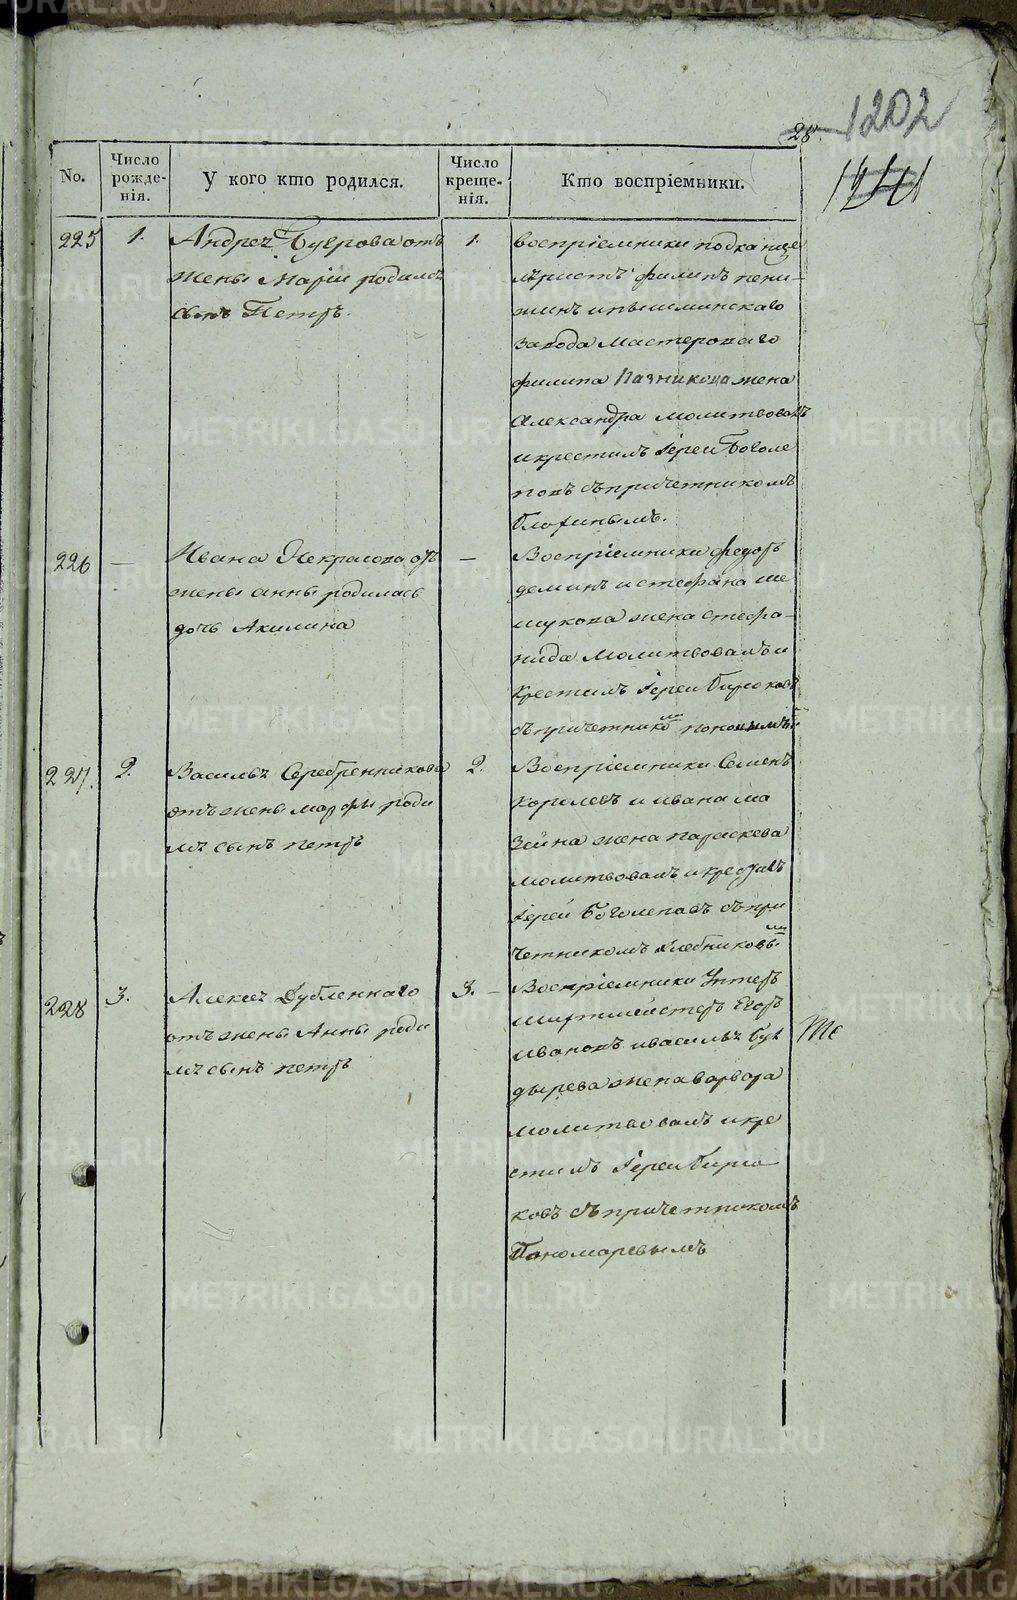 1202
28.
1241
No.
Число рожденія.
У кого кто родился.
Число крещенія.
Кто воспріемники.
225
1.
Андрея Бугрова отъ
жены Маріи родился
сынъ Петръ.
1.
воспріемники подканце
ляристъ филипъ пени-
жинъ ипышминскаго
завода мастероваго
филипа Казникова жена
Александра молитвовалъ
икрестилъ Іереи Боголе
повъ съпричетникомъ
226
—
Ивана Некрасова отъ
жены анны родилась
дочь Акилина
—
Воспріемники федоръ
деминъ истефана ше
шукова жена стефа-
нида Молитвовалъ и
крестилъ Іереи Бирюковъ
съпричетнико
227.
2.
Василья Серебренникова
отъ жены марфы роди
лъ сынъ петръ
2.
Воспріемники Семенъ
Королевъ и ивана ма
зеина жена параскева
молитвовалъ и крестилъ
Іерей Боголеповъ съпри
четникомъ хлебниковы
228
3.
Алексея Дубленнаго
отъ жены Анны роди
лъ сынъ петръ
3.
Воспріемники Унтеръ
шихтмейстеръ Егоръ
ивановъ ивасилья бул
дырева жена варвара
молитвовалъ икре
стилъ Іереи Бирю
ковъ съпричетникомъ
Пономаревымъ
METRIKI.GASO-URAL.RU